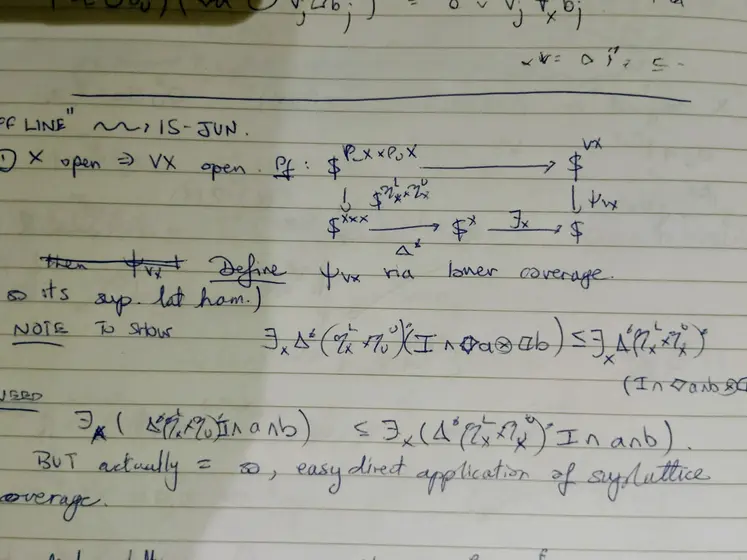 = 0 ∨ V_j ∓_x b_j
OF LINE" ⇝ 15-JUN.
① X open ⇒ VX open. Pf: $^{P_L X × P_U X} → $^{VX}
↓ $^{η^L_X × η^U_X} ↓ ψ_{VX}
$^{X×X} → $^X ∃_X → $
Δ^*
then ψ_{VX} Define ψ_{VX} via lower coverage.
so its sup. lat hom.)
NOTE To show ∃_X Δ^*(η^L_X × η^U_X)^*(I ∩ ◇a ⊗ □b) ≤ ∃_X Δ^*(η^L_X × η^U_X)^*
(I ∩ ◇a∩b ⊗
NEED
∃_X( Δ^*(η^L_X × η^U_X)^* I ∩ a∩b) ≤ ∃_X(Δ^*(η^L_X × η^U_X)^* I ∩ a∩b).
BUT actually = so, easy direct application of suplattice
coverage.